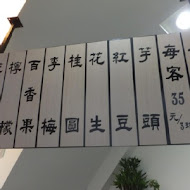 每客35元/
芋頭
紅豆
花生
桂圓
李梅
百香果
檸檬